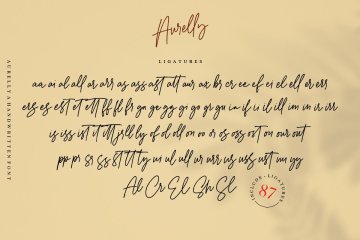 Aurelly
LIGATURES
aa ai al all ar arr as ass ast att aur ax br cr ee ef ei el ell er err
ers es est et ett ff fl fr ga ge gg gi go gr gu ia if ii il ill im in ir irr
is iss ist it itt jr ll ly of ol oll on oo or os oss ost ou our out
pp pr sr ss st tt ty ui ul ull ur urr us uss ust uu yy
Al Cr El Sh Sl
INCLUDE • LIGATURES
87
AURELLY A HANDWRITTEN FONT